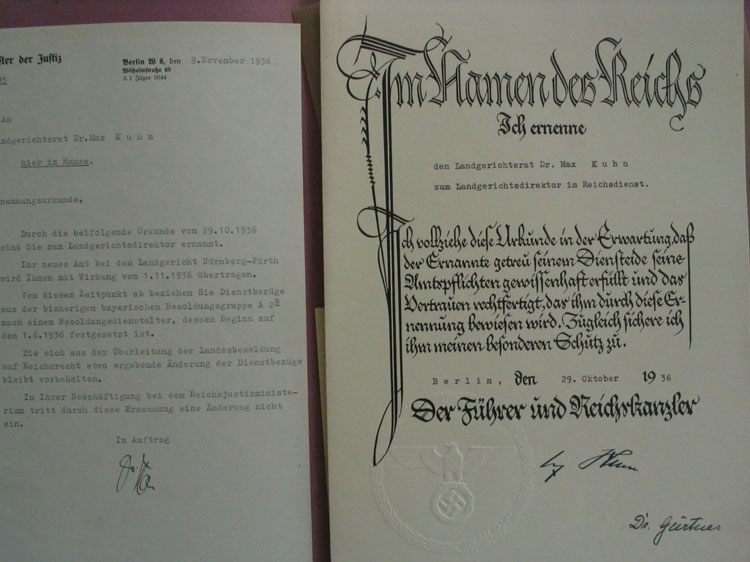 ster der Justiz
Berlin W 8, den 9.November 1936
Wilhelmstraße 65
A I Jäger 0044
An
ndgerichtsrat Dr.Max Kuhn
hier im Hause.
nennungsurkunde.
Durch die beifolgende Urkunde vom 29.10.1936
sind Sie zum Landgerichtsdirektor ernannt.
Ihr neues Amt bei dem Landgericht Nürnberg-Fürth
wird Ihnen mit Wirkung vom 1.11.1936 übertragen.
Von diesem Zeitpunkt ab beziehen Sie Dienstbezüge
aus der bisherigen bayerischen Besoldungsgruppe A 2
nach einem Besoldungsdienstalter, dessen Beginn auf
den 1.6.1936 festgesetzt ist.
Die sich aus der Überleitung der Landesbesoldung
auf Reichsrecht etwa ergebende Änderung der Dienstbezüge
bleibt vorbehalten.
In Ihrer Beschäftigung bei dem Reichsjustizministe-
rium tritt durch diese Ernennung eine Änderung nicht
ein.
Im Auftrag
Im Namen des Reichs
Ich ernenne
den Landgerichtsrat Dr. Max Kuhn
zum Landgerichtsdirektor im Reichsdienst.
Ich vollziehe diese Urkunde in der Erwartung, daß
der Ernannte getreu seinem Diensteide seine
Amtspflichten gewissenhaft erfüllt und das
Vertrauen rechtfertigt, das ihm durch diese Er-
nennung bewiesen wird. Zugleich sichere ich
ihm meinen besonderen Schutz zu.
Berlin, den 29. Oktober 1936
Der Führer und Reichskanzler
Dr. Gürtner